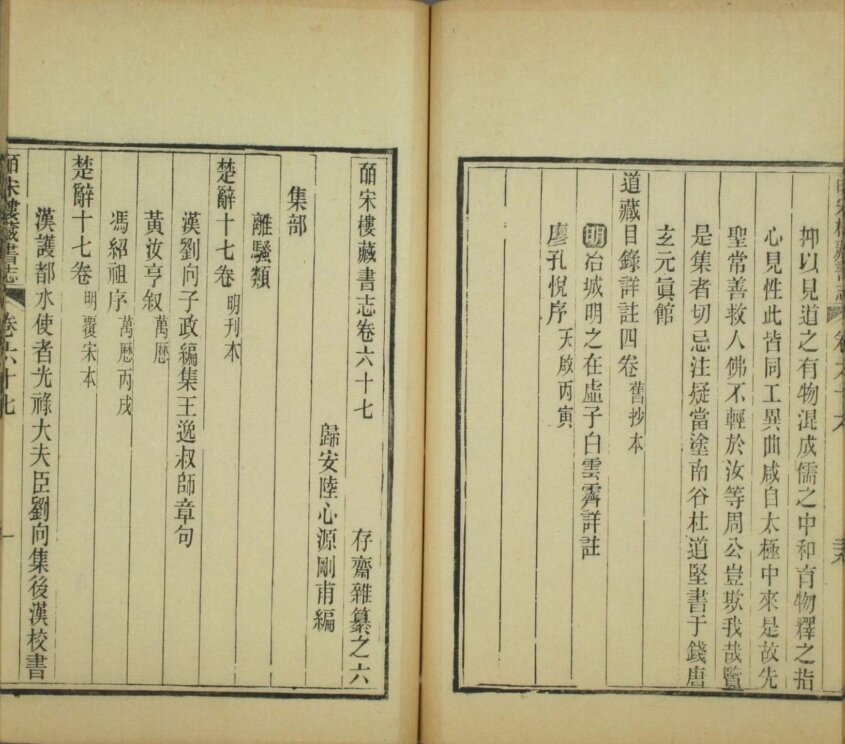 抑以見道之有物混成儒之中和育物釋之指
心見性此皆同工異曲咸自太極中來是故先
聖常善救人佛不輕於汝等周公豈欺我哉覽
是集者切忌注疑當塗南谷杜道堅書于錢唐
玄元眞館
道藏目錄詳註四卷舊抄本
明冶城明之在虛子白雲霽詳註
廖孔悅序天啟丙寅
皕宋樓藏書志卷六十七 存齋雜纂之六
歸安陸心源剛甫編
集部
離騷類
楚辭十七卷明刊本
漢劉向子政編集王逸叔師章句
黃汝亨叙萬厯
馮紹祖序萬厯丙戌
楚辭十七卷明覆宋本
漢護都水使者光祿大夫臣劉向集後漢校書
皕宋樓藏書志 卷六十七 一